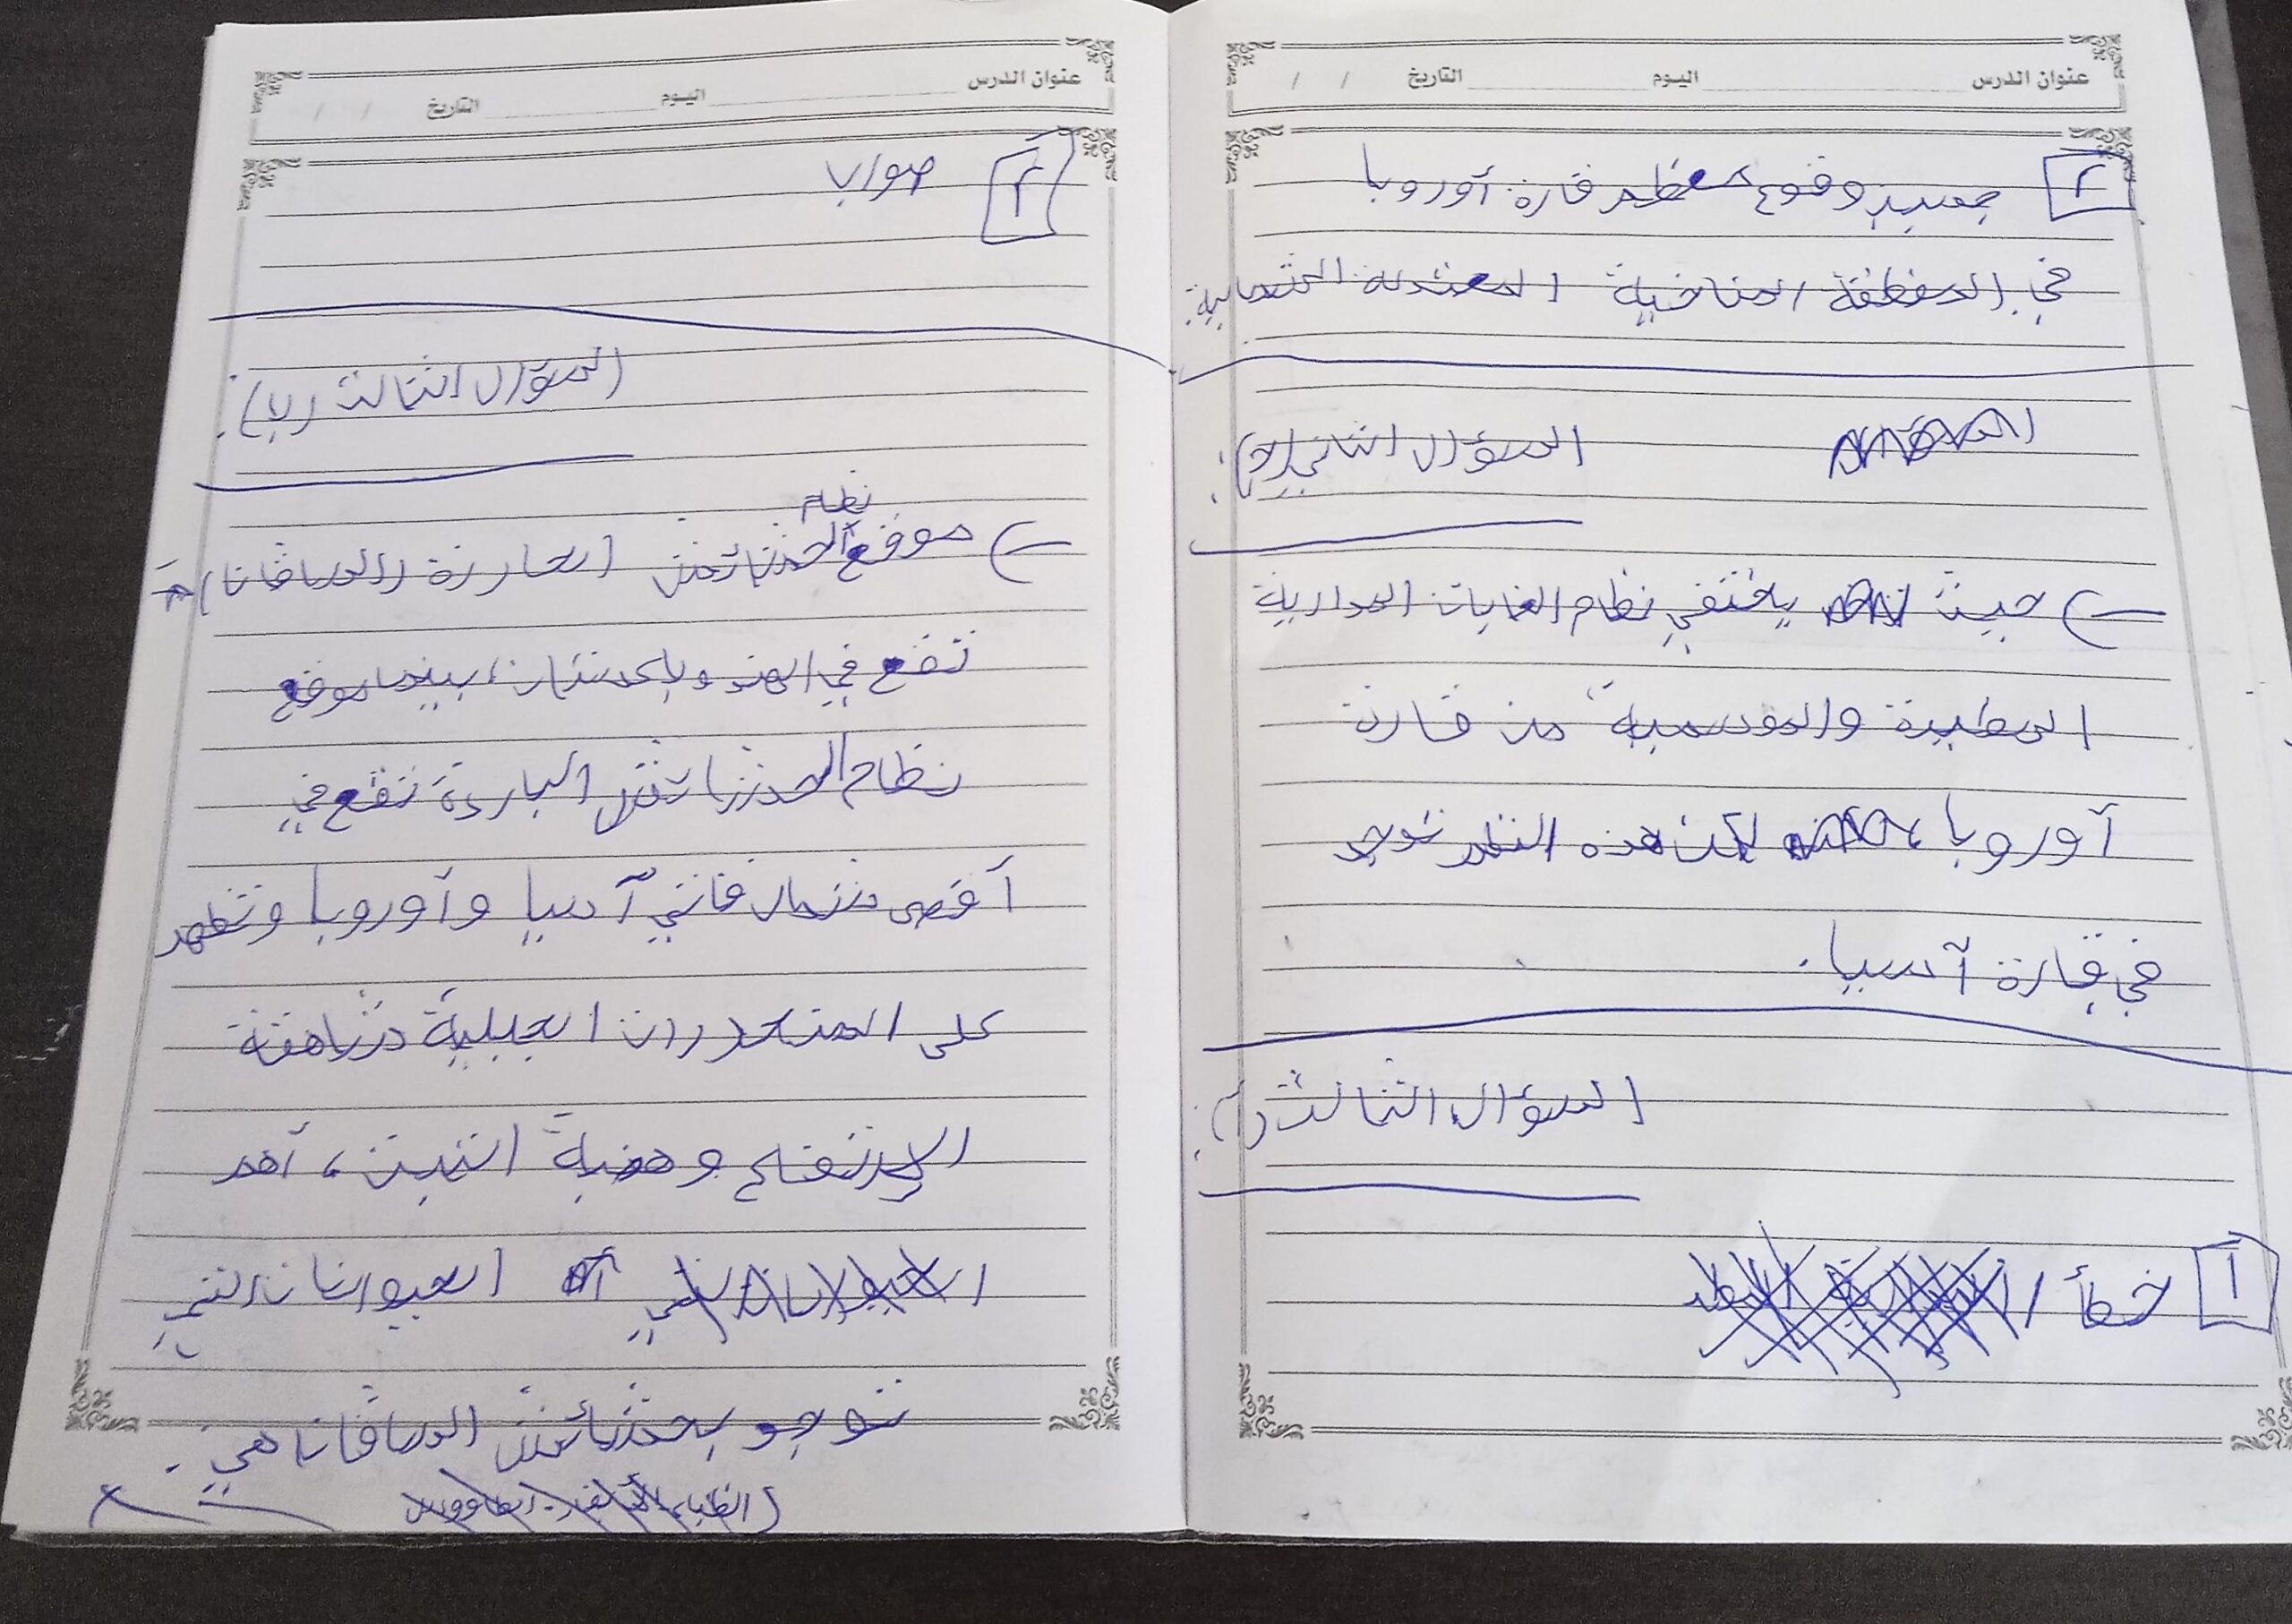 عنوان الدرس اليوم التاريخ / /
٢ بسبب وقوع معظم قارة أوروبا
في المنطقة المناخية المعتدلة الشمالية.
السؤال الثاني (ج):
حيث يختفي نظام الغابات المدارية
المطيرة والموسمية من قارة
أوروبا، لكن هذه النظم توجد
في قارة آسيا.
السؤال الثالث (أ):
١ خطأ /
عنوان الدرس اليوم التاريخ / /
٢ صواب
السؤال الثالث (ب):
نظام
موقع الحشائش الحارزة (السافانا)
تقع في الهند وباكستان، بينما موقع
نظام الحشائش الباردة تقع في
أقصى شمال قاتي آسيا وأوروبا وتظهر
على المنحدرات الجبلية شاهقة
الإرتفاع وهضبة التبت، أهم
الحيوانات التي
توجد بحشائش السافانا هي: